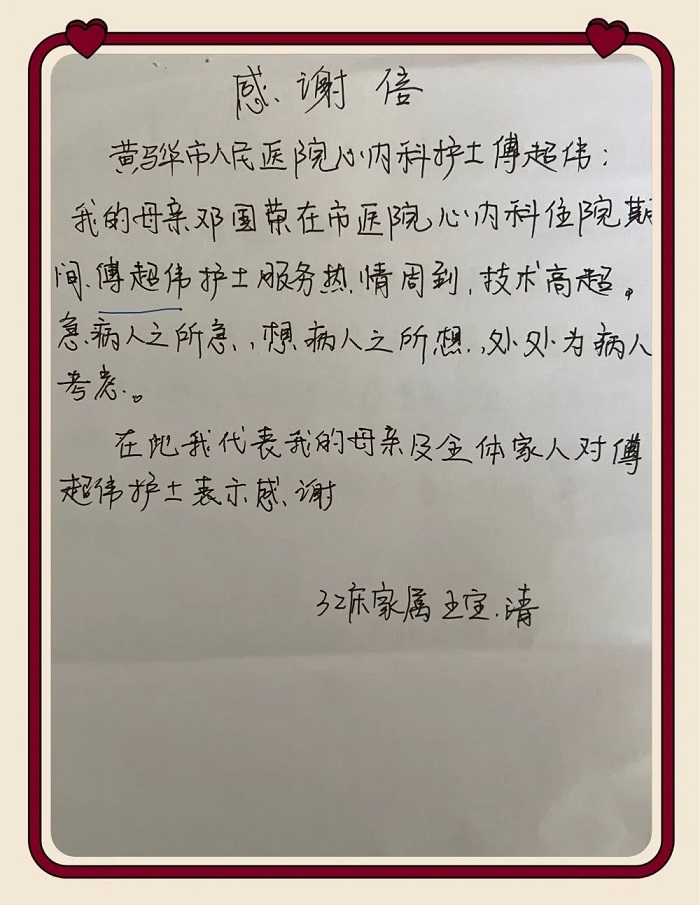 感谢信
黄骅市人民医院心内科护士傅超伟：
我的母亲邓国荣在市医院心内科住院期
间、傅超伟护士服务热情周到，技术高超。
急病人之所急，想病人之所想，处处为病人
考虑。
在此我代表我的母亲及全体家人对傅
超伟护士表示感谢
32床家属王宝清